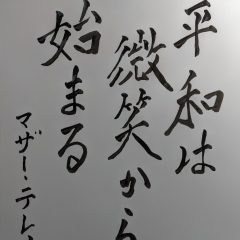 平和は
微笑から
始まる
マザー・テレ